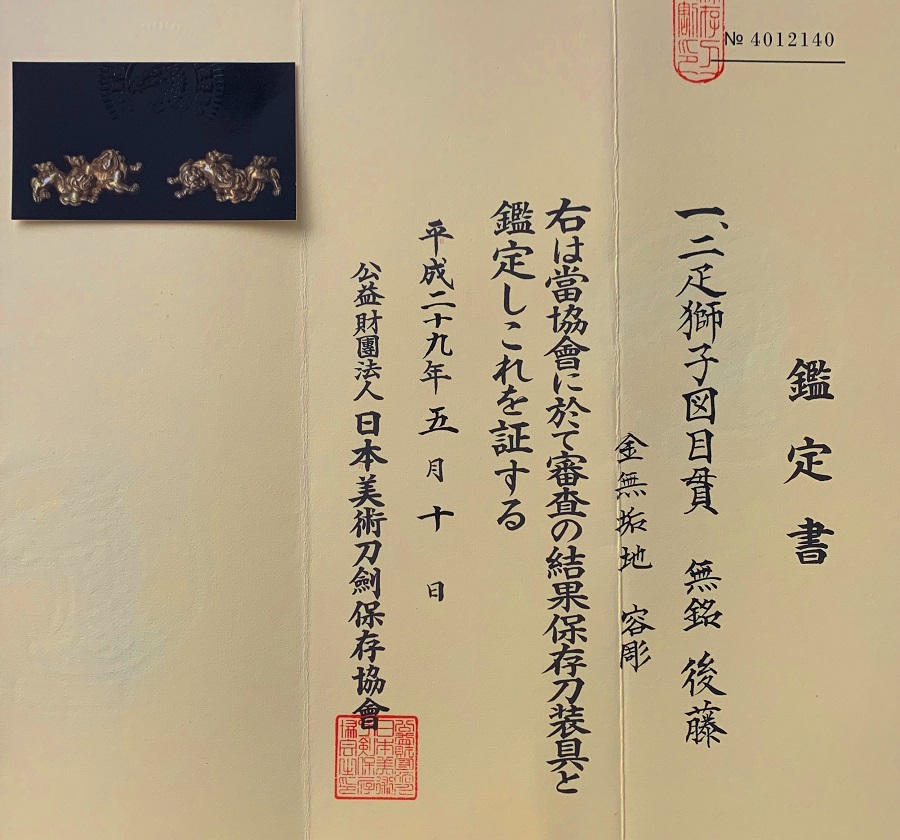 № 4012140
鑑定書
一、二疋獅子図目貫 無銘 後藤
金無垢地 容彫
右は當協會に於て審査の結果保存刀装具と
鑑定しこれを証する
平成二十九年五月十日
公益財團法人日本美術刀劍保存協會